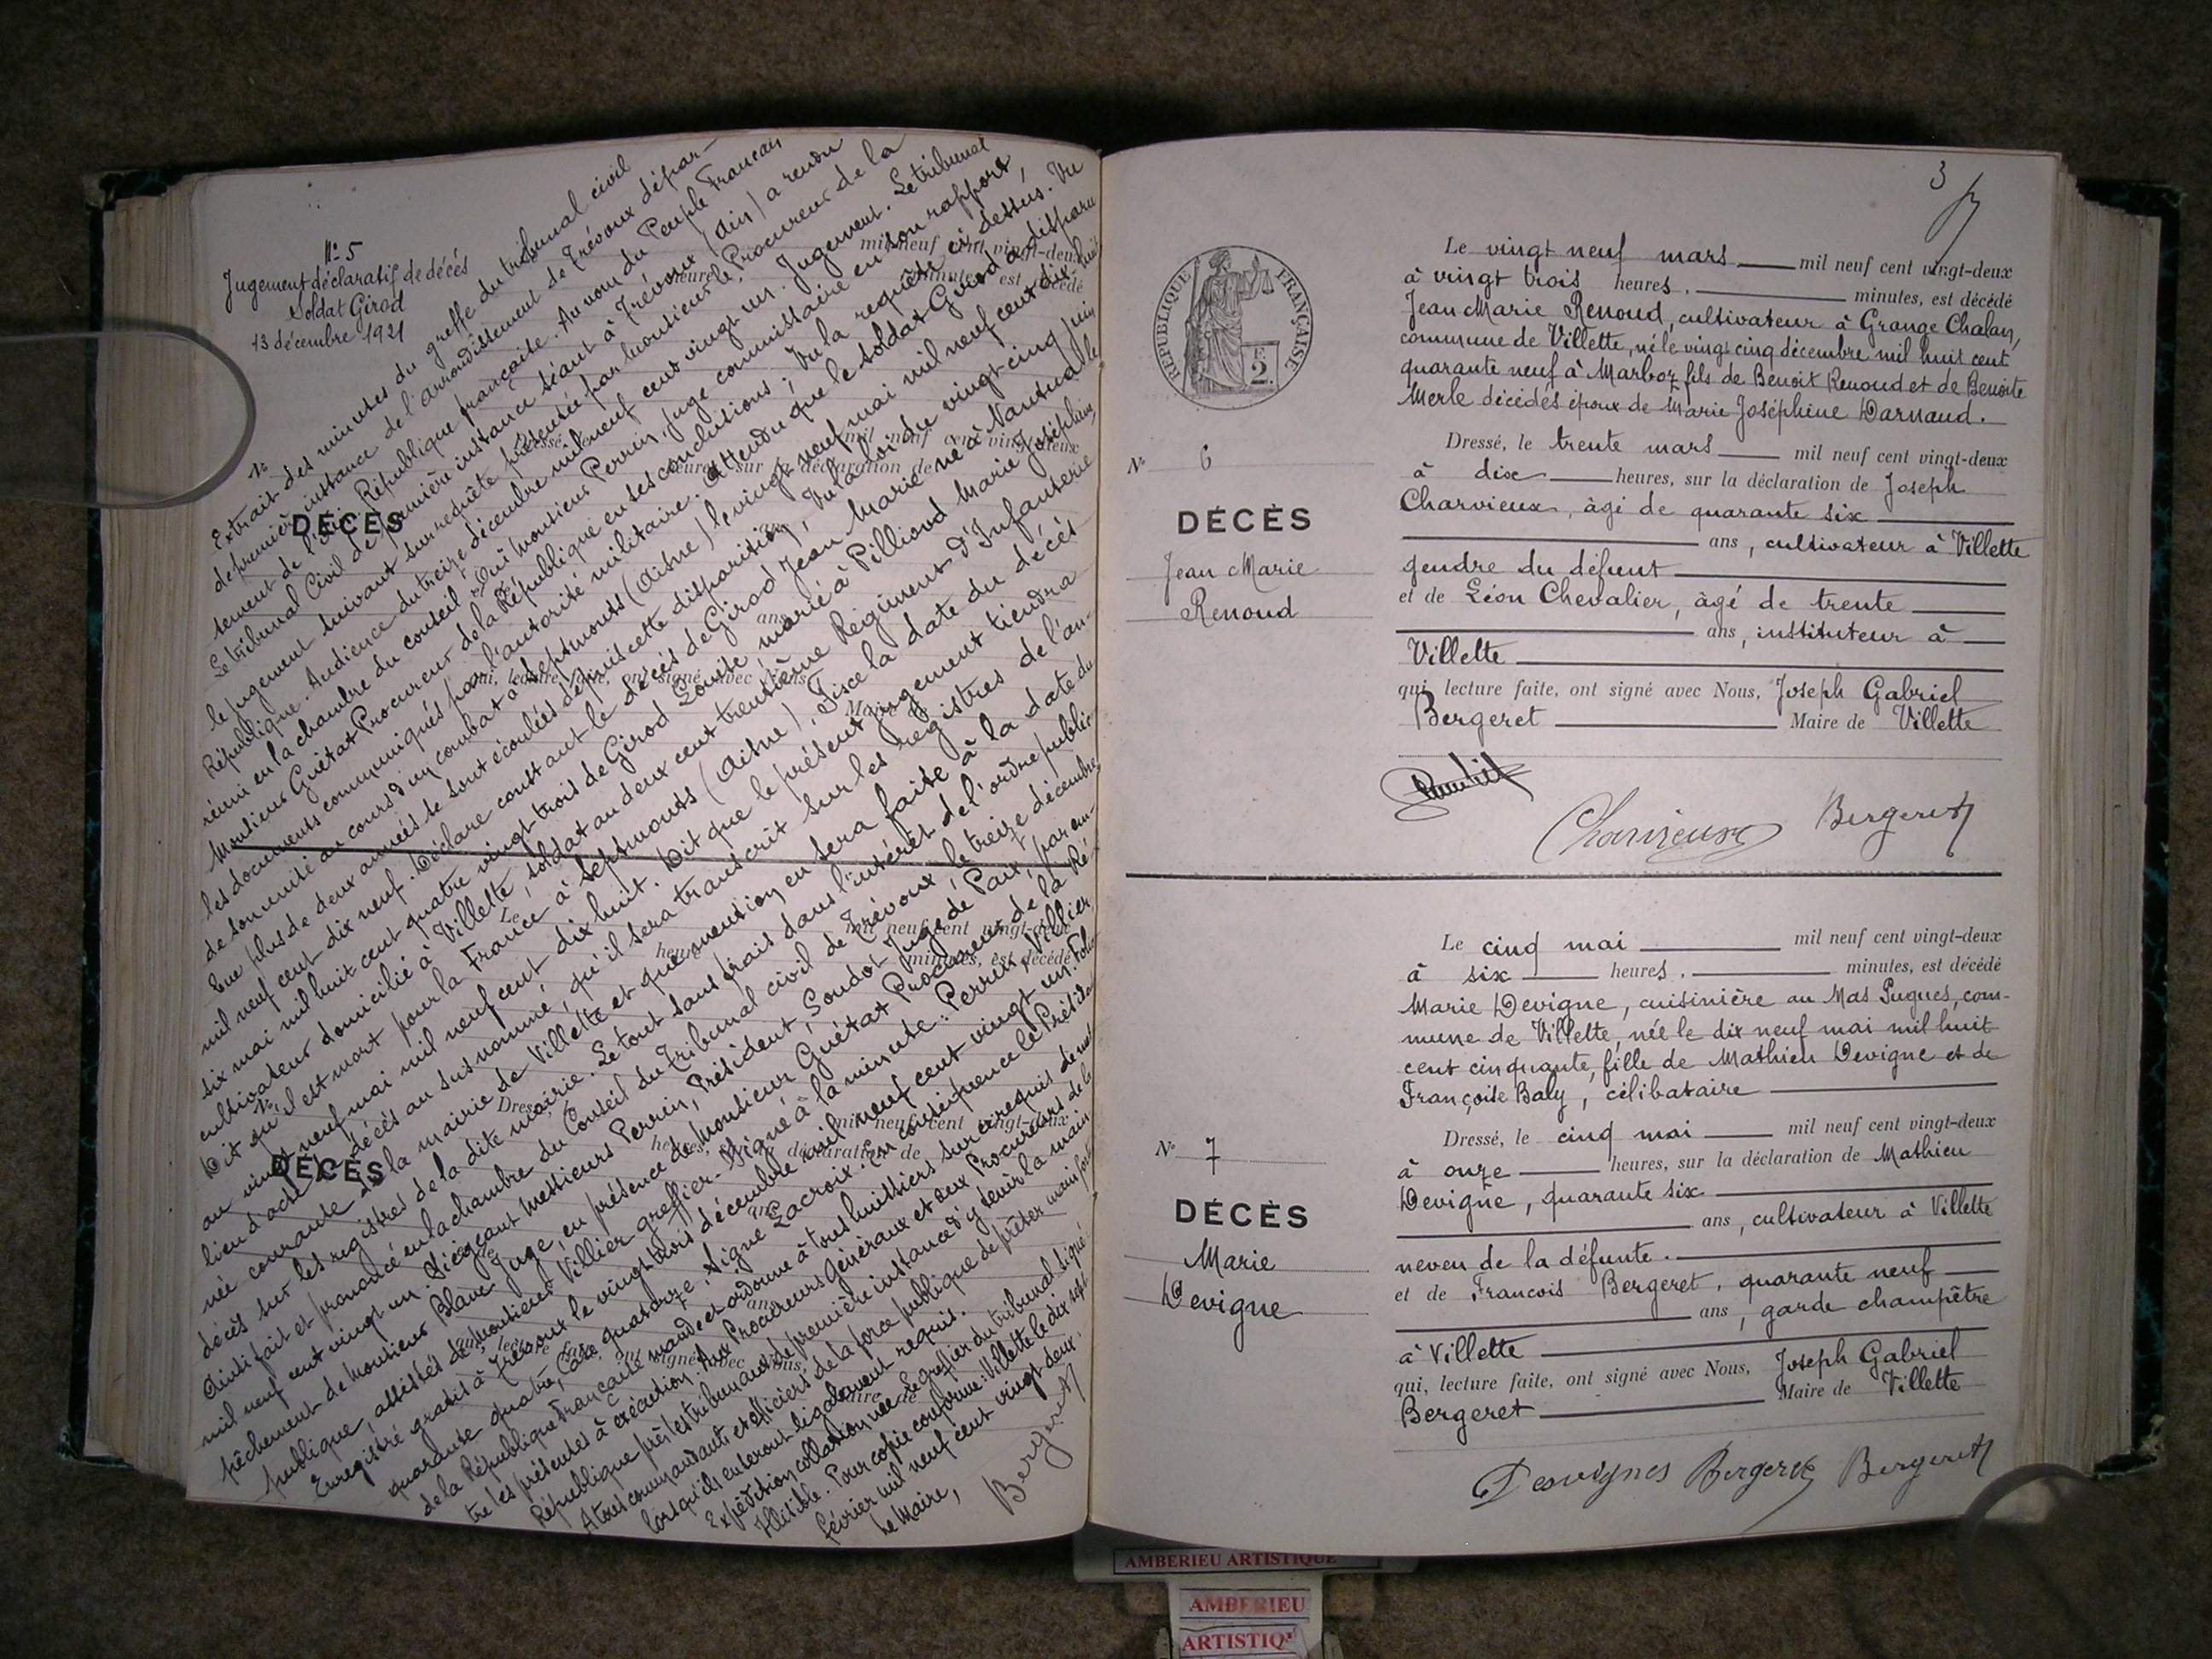 N° 5
Jugement déclaratif de décès
Soldat Girod
13 décembre 1921
N°
DÉCÈS
Extrait des minutes du greffe du tribunal civil
de première instance de l'arrondissement de Trévoux dépar-
tement de l'Ain. République française. Au nom du Peuple Français
Le tribunal Civil de première instance séant à Trévoux (Ain) a rendu
le jugement suivant sur requête présentée par Monsieur le Procureur de la
République. Audience du treize décembre mil neuf cent vingt un. Jugement. Le tribunal
réuni en la chambre du conseil, Ouï Monsieur Perrin, juge commissaire en son rapport,
Monsieur Guétat Procureur de la République en ses conclusions; Vu la requête ci dessus. Vu
les documents communiqués par l'autorité militaire. Attendu que le soldat Girod a disparu
de son unité au cours d'un combat à Septmonts (Aisne) le vingt neuf mai mil neuf cent dix huit
Que plus de deux années se sont écoulées depuis cette disparition, Vu la loi du vingt cinq juin
mil neuf cent dix neuf. Déclare constant le décès de Girod Jean Marie né à Nantua le
six mai mil huit cent quatre vingt trois de Girod Louise marié à Pilliond Marie Joséphine,
cultivateur domicilié à Villette, soldat au deux cent trentième Régiment d'Infanterie
Dit qu'il est mort pour la France à Septmonts (Aisne). Fixe la date du décès
au vingt neuf mai mil neuf cent dix huit. Dit que le présent jugement tiendra
lieu d'acte de décès au susnommé, qu'il sera transcrit sur les registres de l'an-
née courante de la mairie de Villette et que mention en sera faite à la date du
décès sur les registres de la dite mairie. Le tout sans frais dans l'intérêt de l'ordre public
Ainsi fait et prononcé en la chambre du Conseil du Tribunal civil de Trévoux, le treize décembre
mil neuf cent vingt un. Siégeant Messieurs Perrin, Président, Soudot Juge de Paix, par em-
pêchement de Monsieur Blanc Juge, en présence de Monsieur Guétat Procureur de la Ré-
publique, assistés de Monsieur Villier greffier. Signé à la minute: Perrin, Villier
Enregistré gratis à Trévoux le vingt trois décembre mil neuf cent vingt un. Folio
quarante quatre, Case quatorze. Signé Lacroix. En conséquence le Président
de la République Française mande et ordonne à tous huissiers sur ce requis de met-
tre les présentes à exécution. Aux Procureurs Généraux et aux Procureurs de la
République près les tribunaux de première instance d'y tenir la main
A tous commandants et officiers de la force publique de prêter main forte
lorsqu'ils en seront légalement requis.
Expédition collationnée. Le greffier du tribunal signé:
Illisible. Pour copie conforme: Villette le dix sept
février mil neuf cent vingt deux.
Le Maire,
Bergeret
N°
DÉCÈS
3
RÉPUBLIQUE FRANÇAISE
Le vingt neuf mars mil neuf cent vingt-deux
à vingt trois heures. minutes, est décédé
Jean Marie Renoud, cultivateur à Grange Chalan,
commune de Villette, né le vingt cinq décembre mil huit cent
quarante neuf à Marboz fils de Benoit Renoud et de Benoite
Merle décédés époux de Marie Joséphine Darnaud.
N° 6
DÉCÈS
Jean Marie
Renoud
Dressé, le trente mars mil neuf cent vingt-deux
à dix heures, sur la déclaration de Joseph
Charvieux, âgé de quarante six
ans, cultivateur à Villette
gendre du défunt
et de Léon Chevalier, âgé de trente
ans, instituteur à
Villette
qui, lecture faite, ont signé avec Nous, Joseph Gabriel
Bergeret Maire de Villette
Charvieux Bergeret
Le cinq mai mil neuf cent vingt-deux
à six heures. minutes, est décédé
Marie Devigne, cuisinière au Mas Pugues, com-
mune de Villette, née le dix neuf mai mil huit
cent cinquante, fille de Mathieu Devigne et de
Françoise Baly, célibataire
N° 7
DÉCÈS
Marie
Devigne
Dressé, le cinq mai mil neuf cent vingt-deux
à onze heures, sur la déclaration de Mathieu
Devigne, quarante six
ans, cultivateur à Villette
neveu de la défunte.
et de François Bergeret, quarante neuf
ans, garde champêtre
à Villette
qui, lecture faite, ont signé avec Nous, Joseph Gabriel
Bergeret Maire de Villette
Desvignes Bergeret Bergeret
AMBERIEU ARTISTIQUE
AMBERIEU
ARTISTIQ